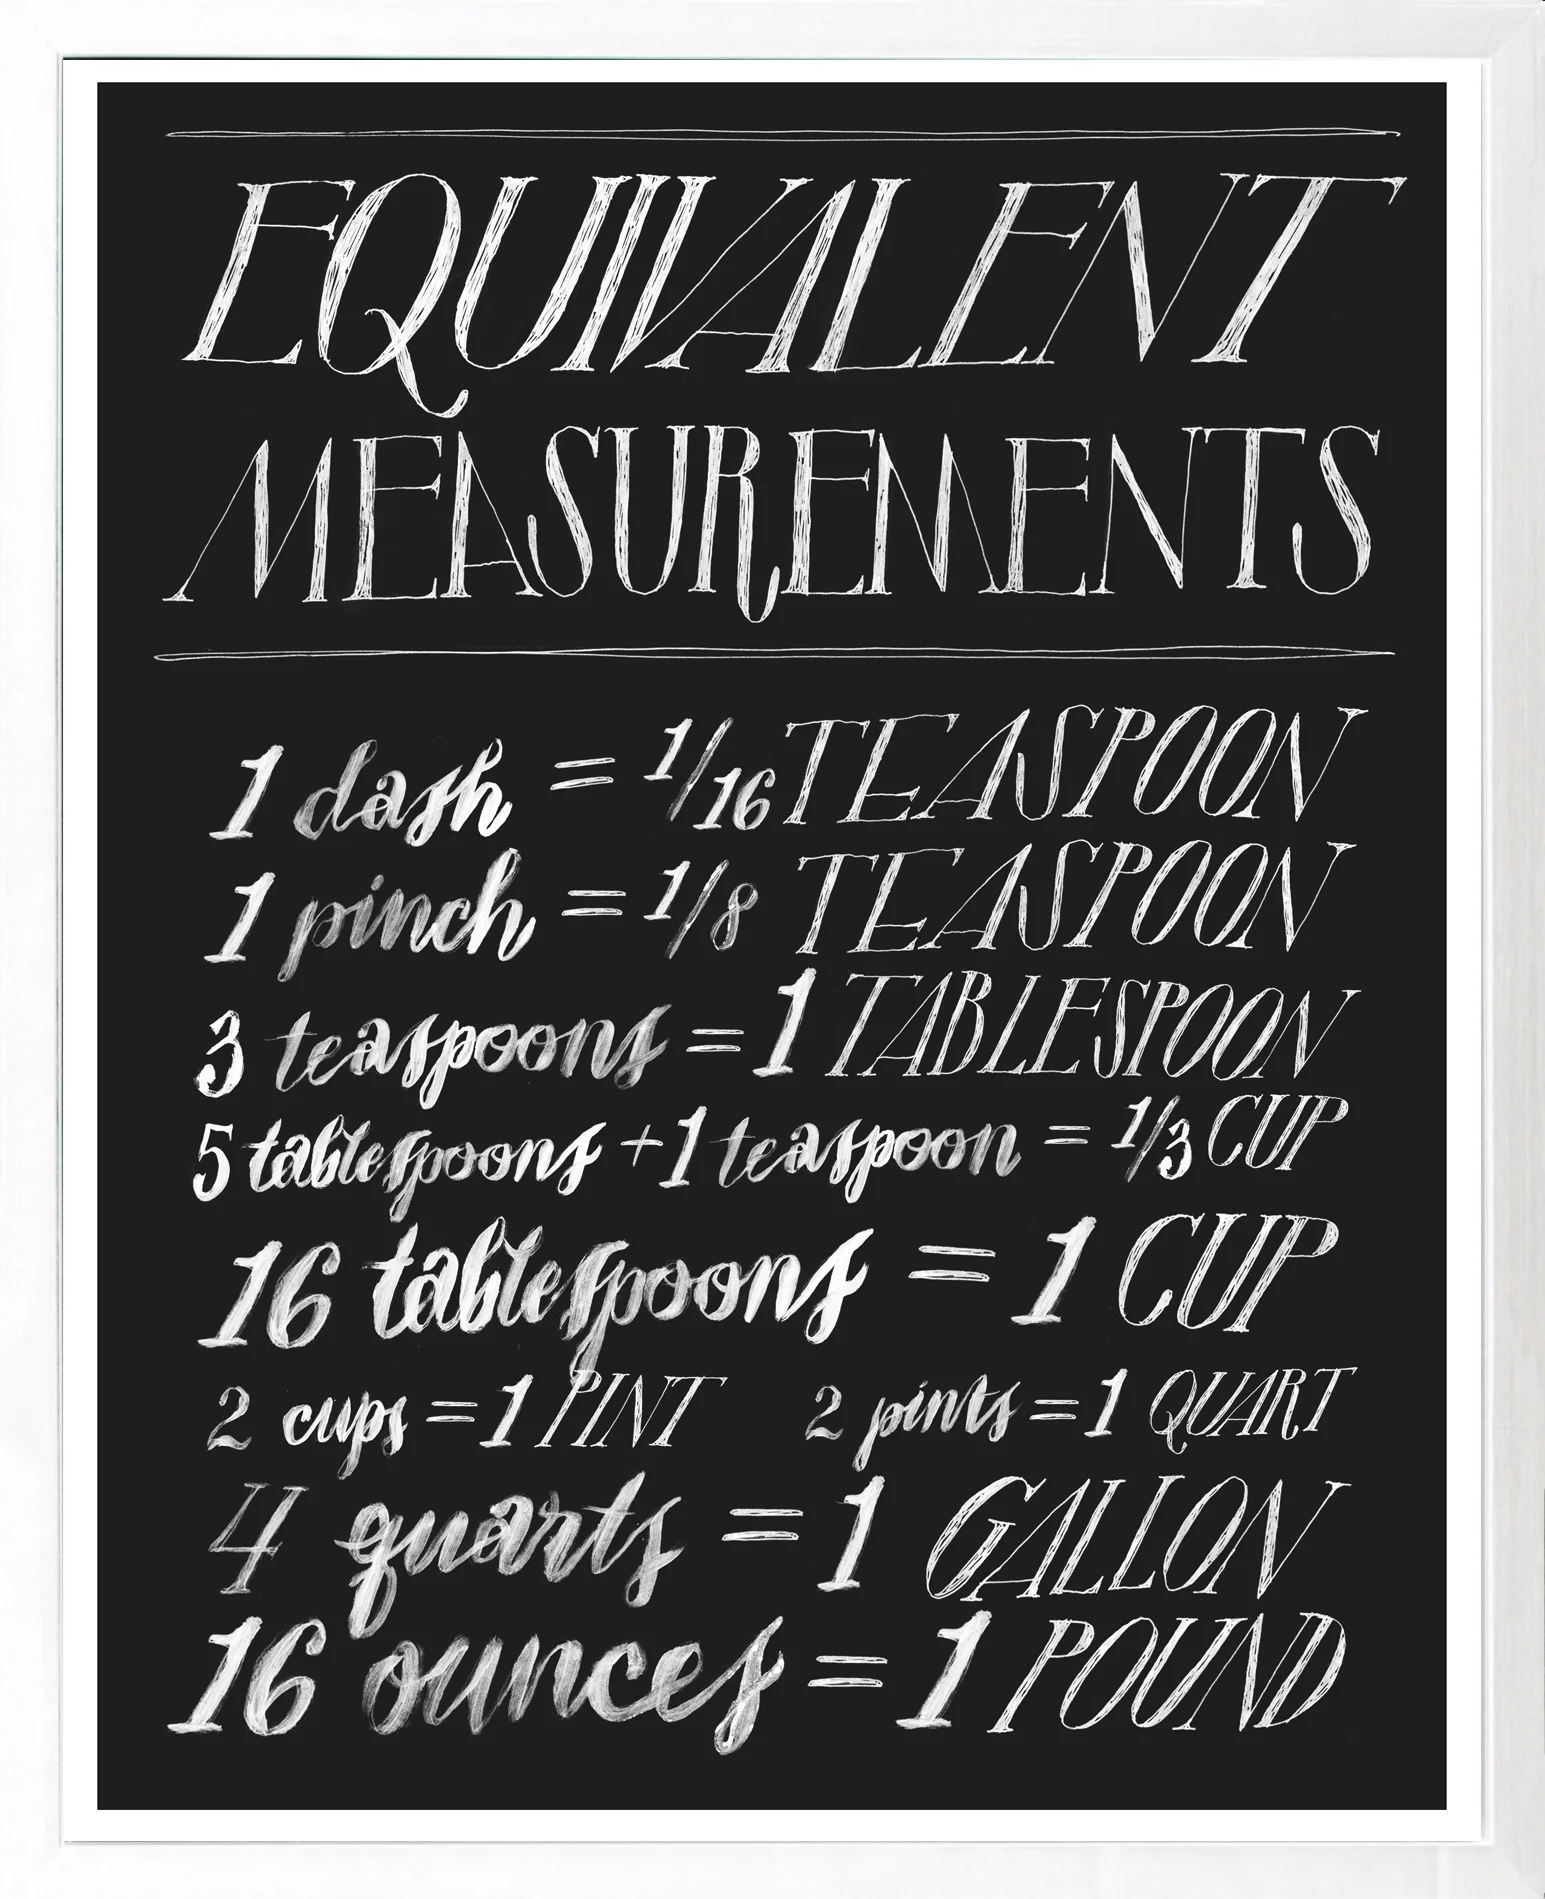 EQUIVALENT
MEASUREMENTS
1 dash = 1/16 TEASPOON
1 pinch = 1/8 TEASPOON
3 teaspoons = 1 TABLESPOON
5 tablespoons + 1 teaspoon = 1/3 CUP
16 tablespoons = 1 CUP
2 cups = 1 PINT 2 pints = 1 QUART
4 quarts = 1 GALLON
16 ounces = 1 POUND